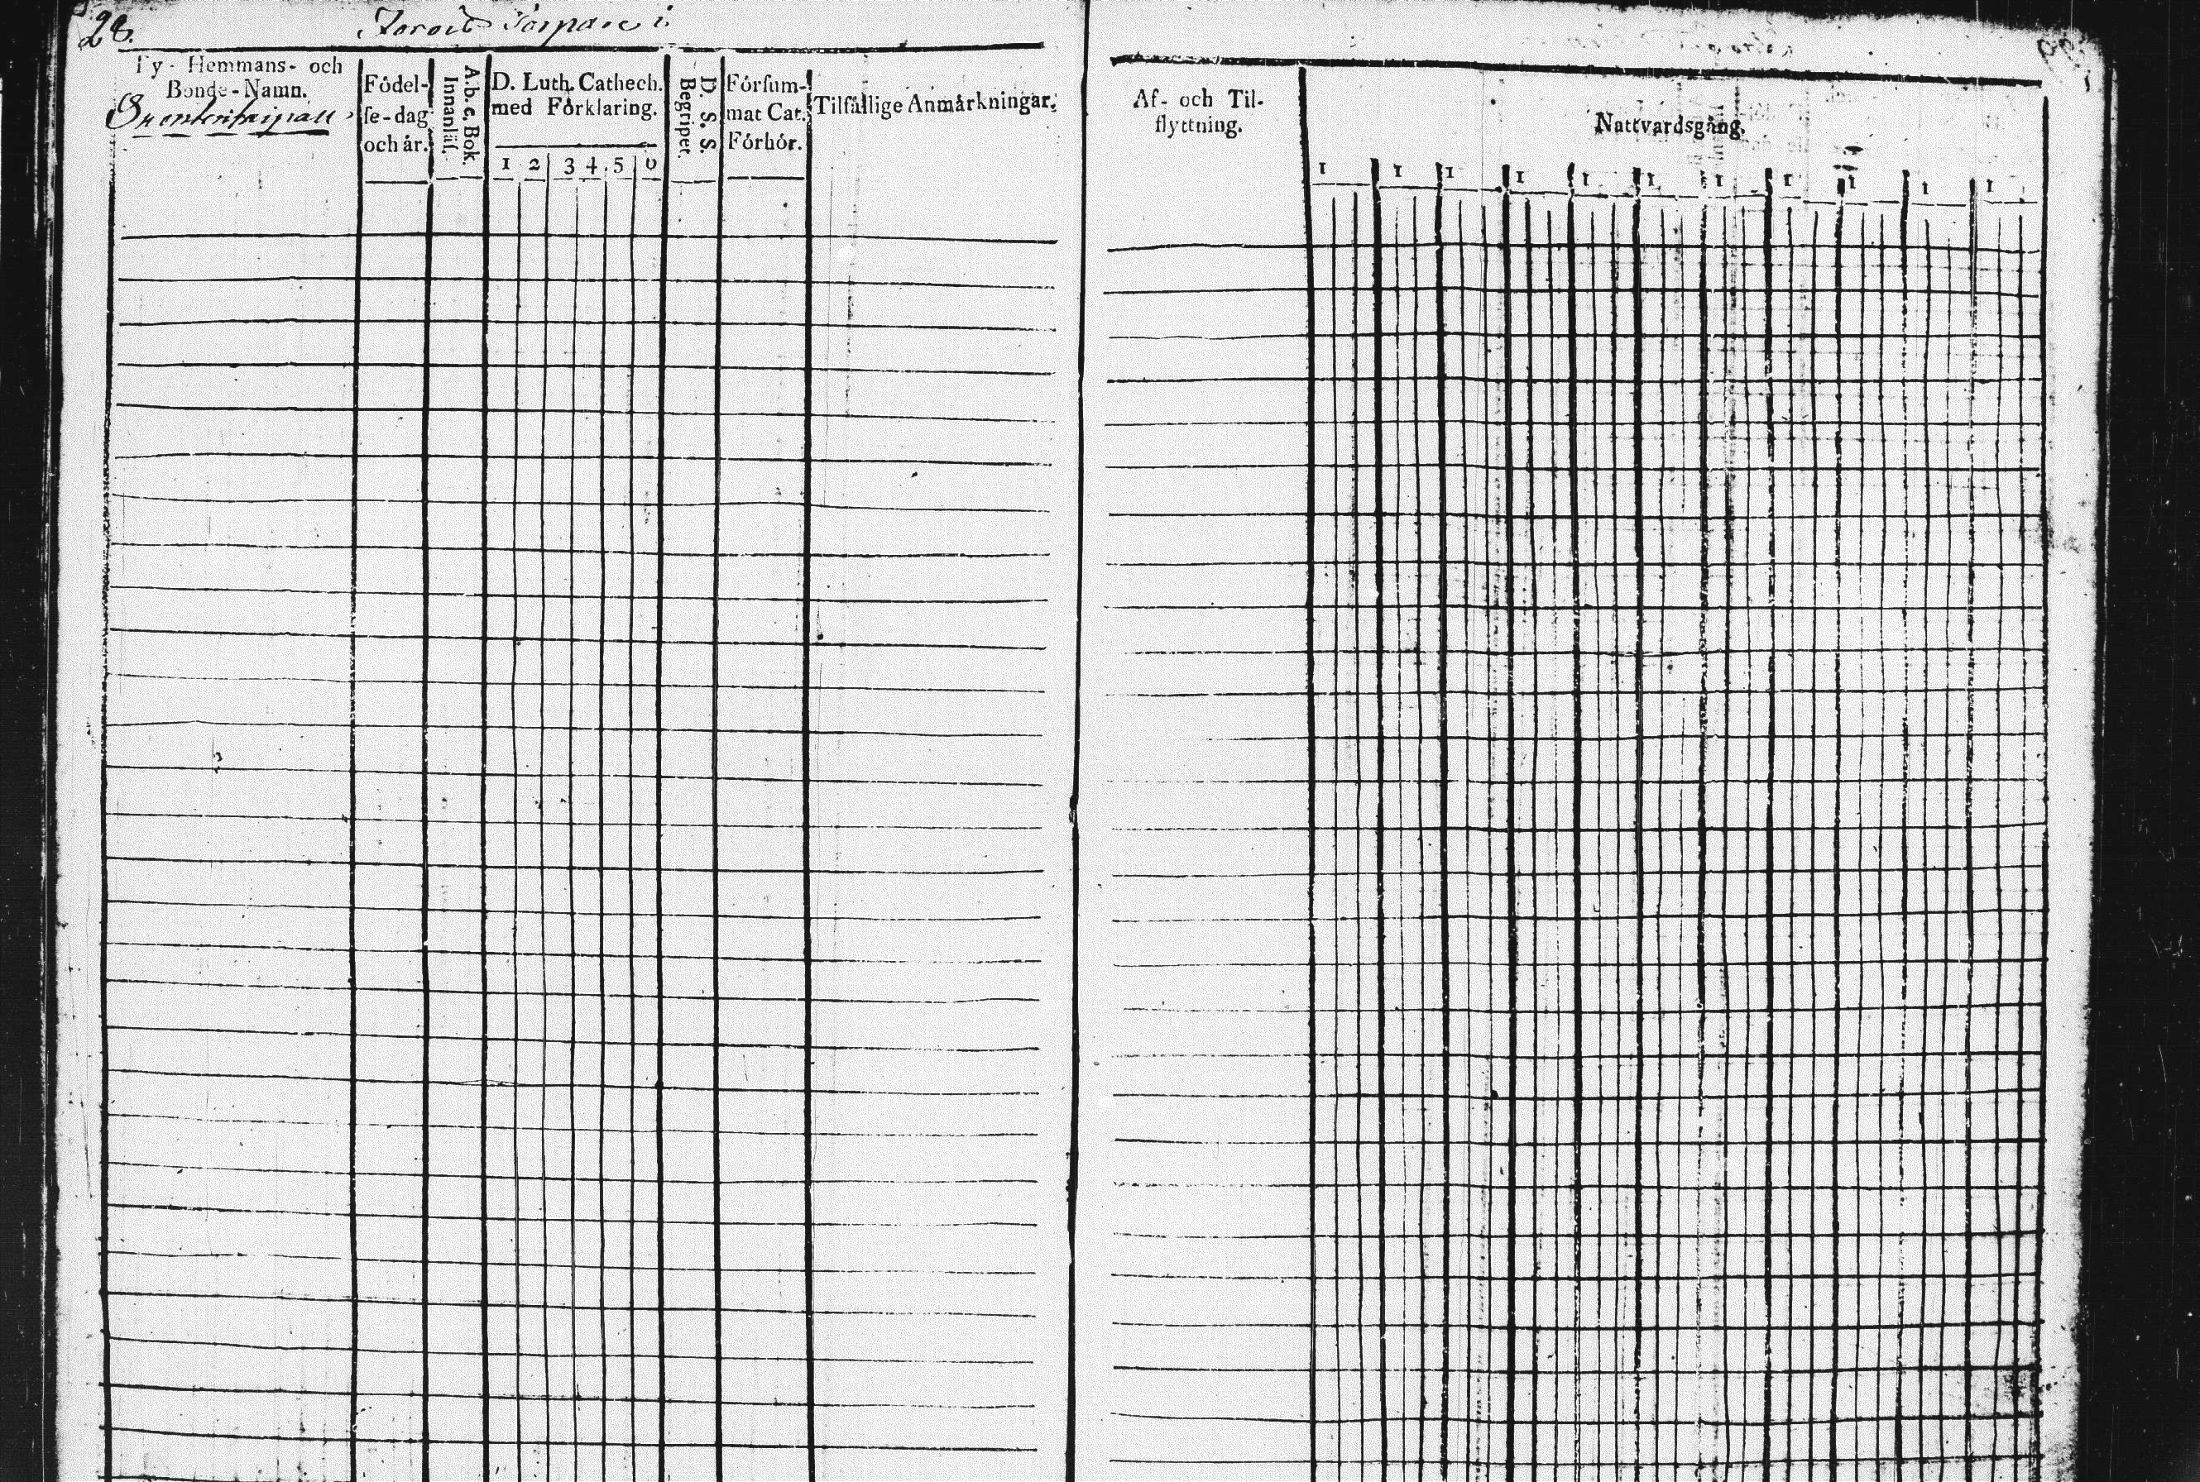 28.
By- Hemmans- och
Bonde-Namn.
Födel-
se-dag
och år.
A.b.c. Bok.
Innanläs.
D. Luth. Cathech.
med Förklaring.
1 2 3 4 5 6
D. S. S.
Begriper.
Försum-
mat Cat.
Förhör.
Tilfällige Anmärkningar.
Af- och Til-
flyttning.
Nattvardsgång.
1 1 1 1 1 1 1 1 1 1 1